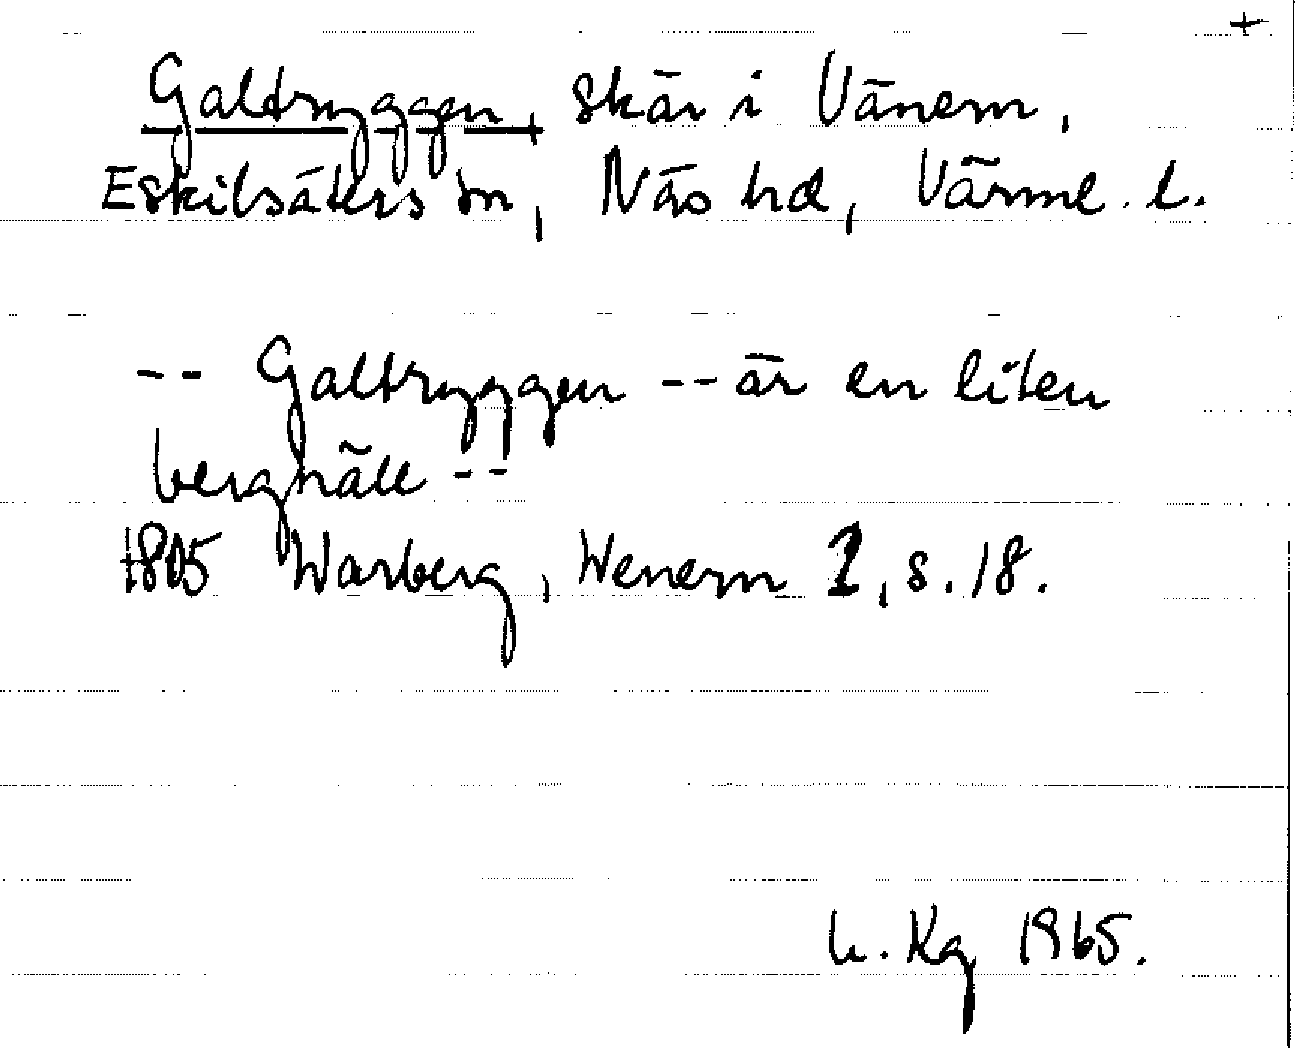 +
Galtryggen, skär i Vänern,
Eskilsäters sn, Näs hd, Värml. l.
-- Galtryggen -- är en liten
berghäll --
1805 Warberg, Wenern 1, s. 18.
L. Kg 1965.